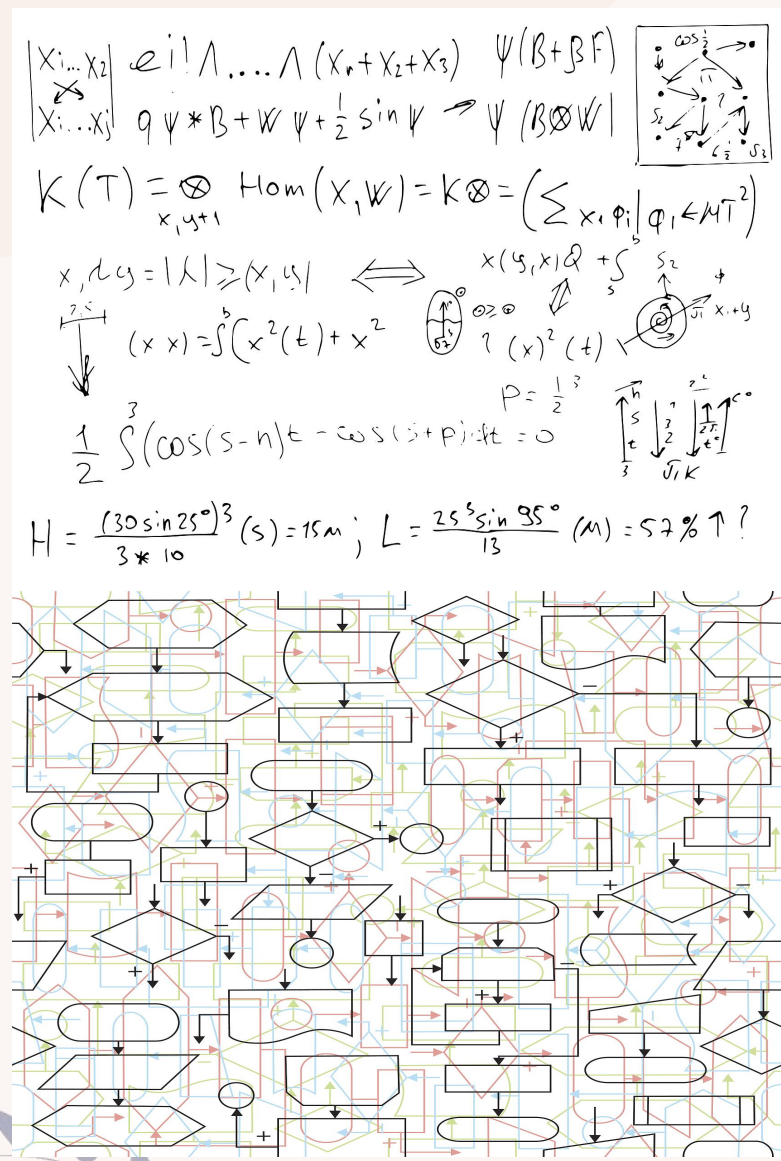 |Xi...X2| ei!Λ....Λ (Xn+X2+X3) Ψ(B+βF)
|Xi...Xj| qΨ*B+WΨ+1/2 sinΨ → Ψ(B⊗W|
cos 1/2
S2 ?
7° 6 1/2 S3
K(T)=⊗ x,y+1 Hom(X,W)=K⊗=(∑x1φi|φ1∈MT²)
x,dy=|λ|≥(x,y| ⟺ x(y,x)Q+∫ b s S2
(x x)=∫ b (x²(t)+x² ? (x)²(t)
J1 x1+y
P=1/2 ³
1/2 ∫ 3 (cos(s-n)t-cos(s+p)t dt=0
h
s 3
t 2 t°
3 J1K
H=(30sin25°)³/3*10 (s)=15m; L=25³sin95°/13 (M)=57%↑?
− +
+ −
+ − + −
+ − +
+
+